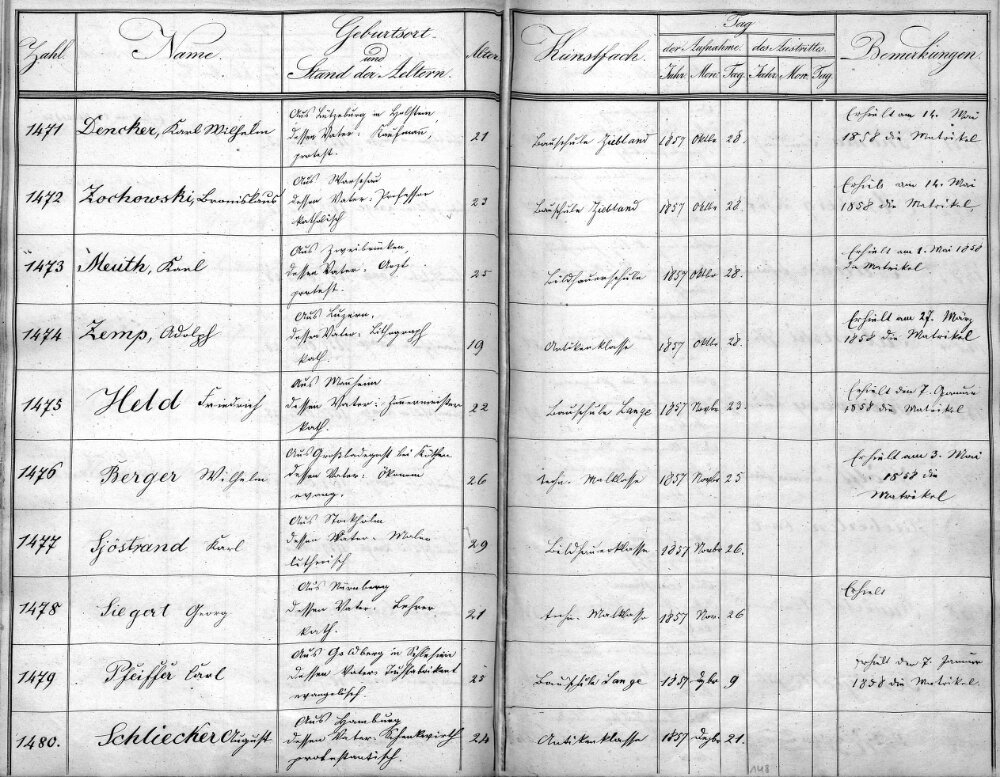 Zahl. Name. Geburtsort und Stand der Aeltern. Alter Kunstfach. Tag der Aufnahme. des Austrittes. Bemerkungen.
Jahr Mon. Tag. Jahr Mon. Tag.
1471 Dencker, Karl Wilhelm
Aus Lützeburg in Holstein,
dessen Vater: Kaufmann,
protest.
21 Bauschule Ziebland 1857 Oktbr 28.
Erhielt am 14. Mai
1858 die Matrikel
1472 Zochowski, Bronislaus
Aus Warschau
dessen Vater: Professor
katholisch
23 Bauschule Ziebland 1857 Oktbr 28
Erhielt am 14. Mai
1858 die Matrikel,
1473 Meuth, Karl
Aus Zweibrücken,
dessen Vater: Arzt
protest.
25 Bildhauerschule 1857 Oktbr 28.
Erhielt am 1. Mai 1858
die Matrikel
1474 Zemp, Adolph
Aus Luzern,
dessen Vater: Lithograph
kath.
19 Antikenklasse 1857 Oktbr 28.
Erhielt am 27. März
1858 die Matrikel
1475 Held Friedrich
Aus Manheim
dessen Vater: Zimermeister
kath.
22 Bauschule Lange 1857 Novbr 23.
Erhielt den 7. Januar
1858 die Matrikel
1476 Berger Wilhelm
Aus Großbadegast bei Köthen
dessen Vater: Ökonom
evang.
26 techn. Malklasse 1857 Novbr 25
Erhielt am 3. Mai
1858 die
Matrikel
1477 Sjöstrand Karl
Aus Stockholm
dessen Vater: Maler
lutherisch
29 Bildhauerklasse 1857 Novbr 26.
1478 Siegert Georg
Aus Nürnberg
dessen Vater: Lehrer
kath.
21 techn. Malklasse 1857 Nov. 26
Erhielt
1479 Pfeiffer Carl
Aus Goldberg in Schlesien
dessen Vater: Tuchfabrikant
evangelisch
25 Bauschule Lange 1857 Dzbr 9
Erhielt den 7. Januar
1858 die Matrikel.
1480. Schliecker August
Aus Hamburg
dessen Vater: Schenkwirth
protestantisch
24 Antikenklasse 1857 Dezbr 21.
148